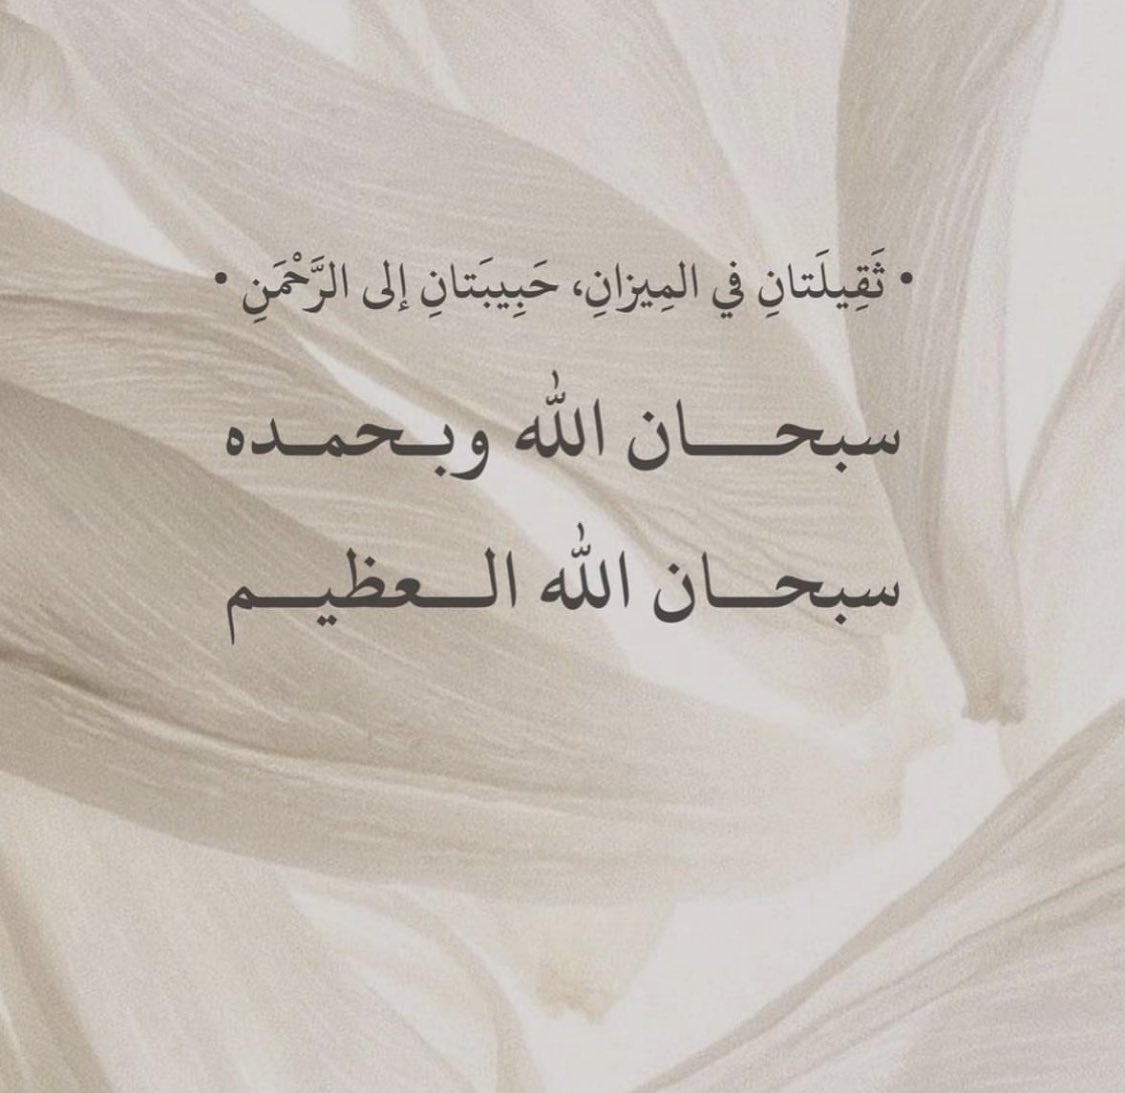 • ثَقِيلَتانِ في المِيزانِ، حَبِيبَتانِ إلى الرَّحْمَنِ •
سبحـــان اللّٰه وبـحمـده
سبحـــان اللّٰه الـــعظيـــم